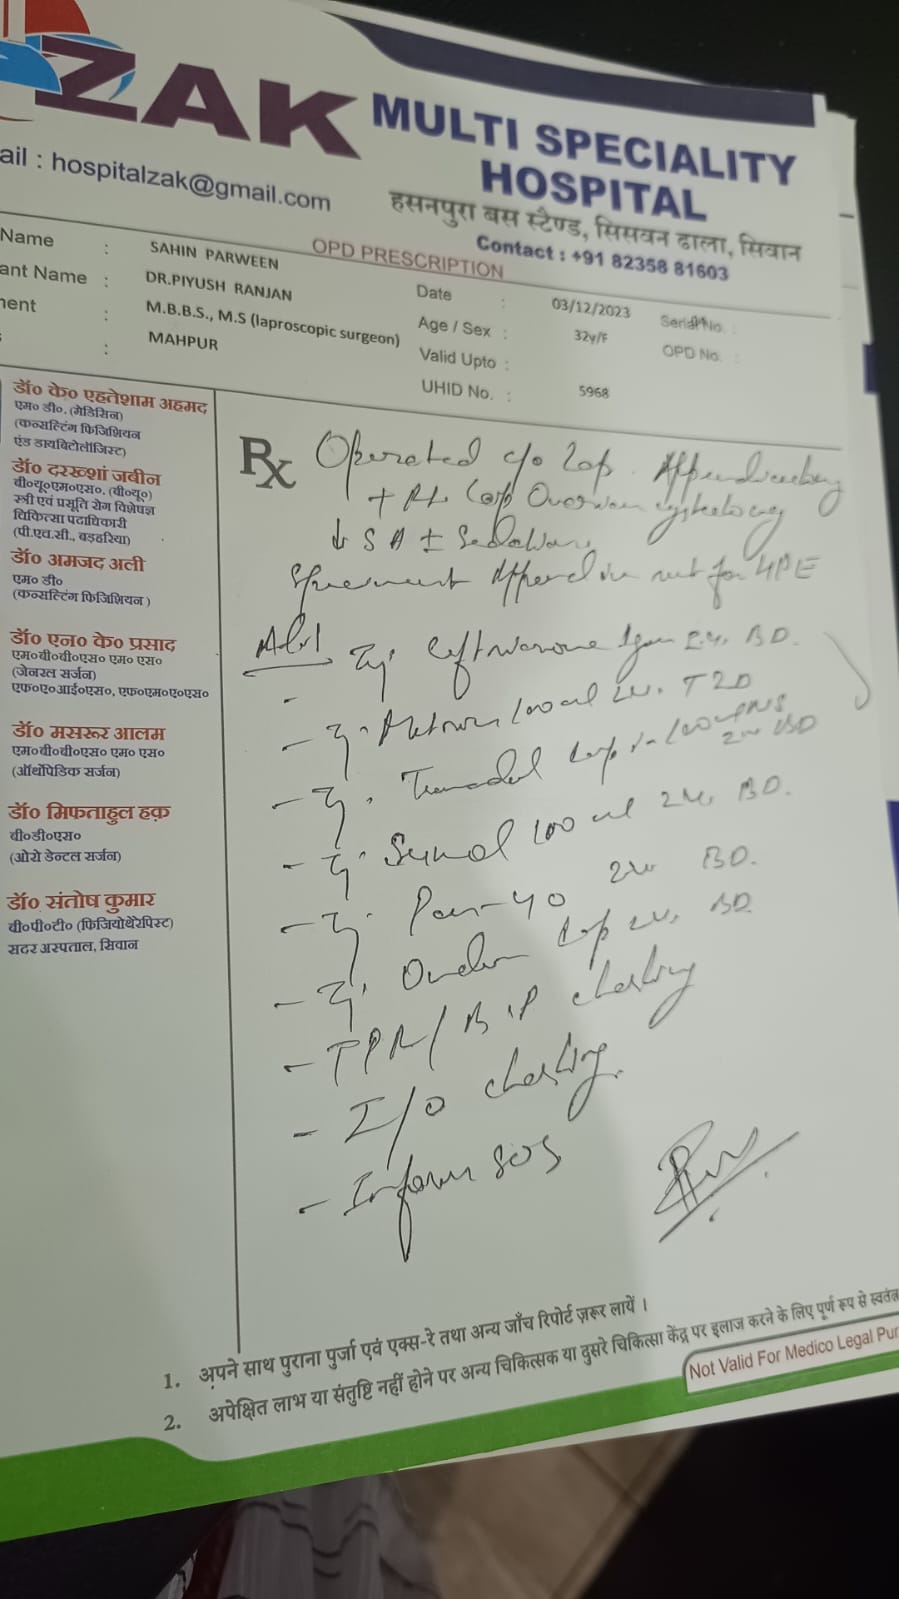 ZAK
MULTI SPECIALITY
HOSPITAL
ail : hospitalzak@gmail.com
हसनपुरा बस स्टैण्ड, सिसवन ढाला, सिवान
Contact : +91 82358 81603
OPD PRESCRIPTION
Name : SAHIN PARWEEN
ant Name : DR.PIYUSH RANJAN
ment : M.B.B.S., M.S (laproscopic surgeon)
: MAHPUR
Date : 03/12/2023
Age / Sex : 32y/F
Valid Upto :
UHID No. : 5968
Serial No. :
OPD No. :
डॉ० के० एहतेशाम अहमद
एम० डी०, (मेडिसिन)
(कन्सल्टिंग फिजिशियन
एंड डायबिटोलॉजिस्ट)
डॉ० दरख्शां जबीन
बी०यू०एम०एस०, (बी०यू०)
स्त्री एवं प्रसूति रोग विशेषज्ञ
चिकित्सा पदाधिकारी
(पी.एच.सी., बड़हरिया)
डॉ० अमजद अली
एम० डी०
(कन्सल्टिंग फिजिशियन )
डॉ० एन० के० प्रसाद
एम०बी०बी०एस० एम० एस०
(जेनरल सर्जन)
एफ०ए०आई०एस०, एफ०एम०ए०एस०
डॉ० मसरूर आलम
एम०बी०बी०एस० एम० एस०
(ऑर्थोपेडिक सर्जन)
डॉ० मिफताहुल हक़
बी०डी०एस०
(ओरो डेन्टल सर्जन)
डॉ० संतोष कुमार
बी०पी०टी० (फिजियोथैरेपिस्ट)
सदर अस्पताल, सिवान
Rx Operated c/o Lap. Appendicectomy
+ Rt. Lap Ovarian cystectomy
↓ S A ± Sedation
Specimen Appendix sent for HPE
Adv
- Inj. Ceftriaxone 1gm I.V. BD.
- Inj. Metron 100 ml I.V. TID
- Inj. Tramadol 1amp in 100ml NS
I.V. BD
- Inj. 100 ml I.V. BD.
- Inj. Pan-40 I.V. BD.
- Inj. Ondem 1amp I.V. BD
- TPR/B.P charting
- I/O charting.
- Inform SOS
1. अपने साथ पुराना पुर्जा एवं एक्स-रे तथा अन्य जाँच रिपोर्ट ज़रूर लायें ।
2. अपेक्षित लाभ या संतुष्टि नहीं होने पर अन्य चिकित्सक या दुसरे चिकित्सा केंद्र पर इलाज करने के लिए पूर्ण रूप से स्वतंत्र
Not Valid For Medico Legal Pur